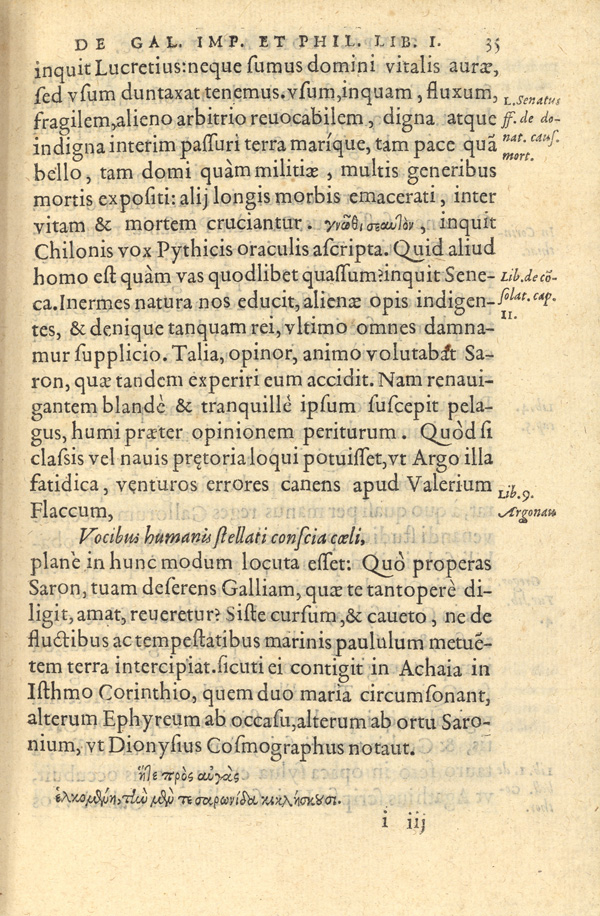 DE GAL. IMP. ET PHIL. LIB. I. 35
inquit Lucretius:neque ſumus domini vitalis auræ,
ſed vſum duntaxat tenemus.vſum,inquam, fluxum,
fragilem,alieno arbitrio reuocabilem, digna atque
indigna interim paſſuri terra maríque, tam pace quã
bello, tam domi quàm militiæ, multis generibus
mortis expoſiti: alij longis morbis emacerati, inter
vitam & mortem cruciantur. γνῶθι σεαυτὸν, inquit
Chilonis vox Pythicis oraculis aſcripta. Quid aliud
homo eſt quàm vas quodlibet quaſſum?inquit Sene-
ca.Inermes natura nos educit,alienæ opis indigen-
tes, & denique tanquam rei, vltimo omnes damna-
mur ſupplicio. Talia, opinor, animo volutabat Sa-
ron, quæ tandem experiri eum accidit. Nam renaui-
gantem blandè & tranquillè ipſum ſuſcepit pela-
gus, humi præter opinionem periturum. Quòd ſi
claſsis vel nauis prętoria loqui potuiſſet,vt Argo illa
fatidica, venturos errores canens apud Valerium
Flaccum,
Vocibus humanis ſtellati conſcia cœli,
planè in hunc modum locuta eſſet: Quò properas
Saron, tuam deſerens Galliam, quæ te tantoperè di-
ligit, amat, reueretur? Siſte curſum,& caueto, ne de
fluctibus ac tempeſtatibus marinis paululum metuẽ-
tem terra intercipiat.ſicuti ei contigit in Achaia in
Iſthmo Corinthio, quem duo maria circumſonant,
alterum Ephyreum ab occaſu,alterum ab ortu Saro-
nium, vt Dionyſius Coſmographus notaut.
ἥδε πρὸς αὐγὰς
ἑλκομένη, τὴν μὲν τε σαρωνίδα κικλήσκουσι.
i iij
L. Senatus
ff. de do-
nat. cauſ.
mort.
Lib. de cõ-
ſolat. cap.
11.
Lib. 9.
Argonau